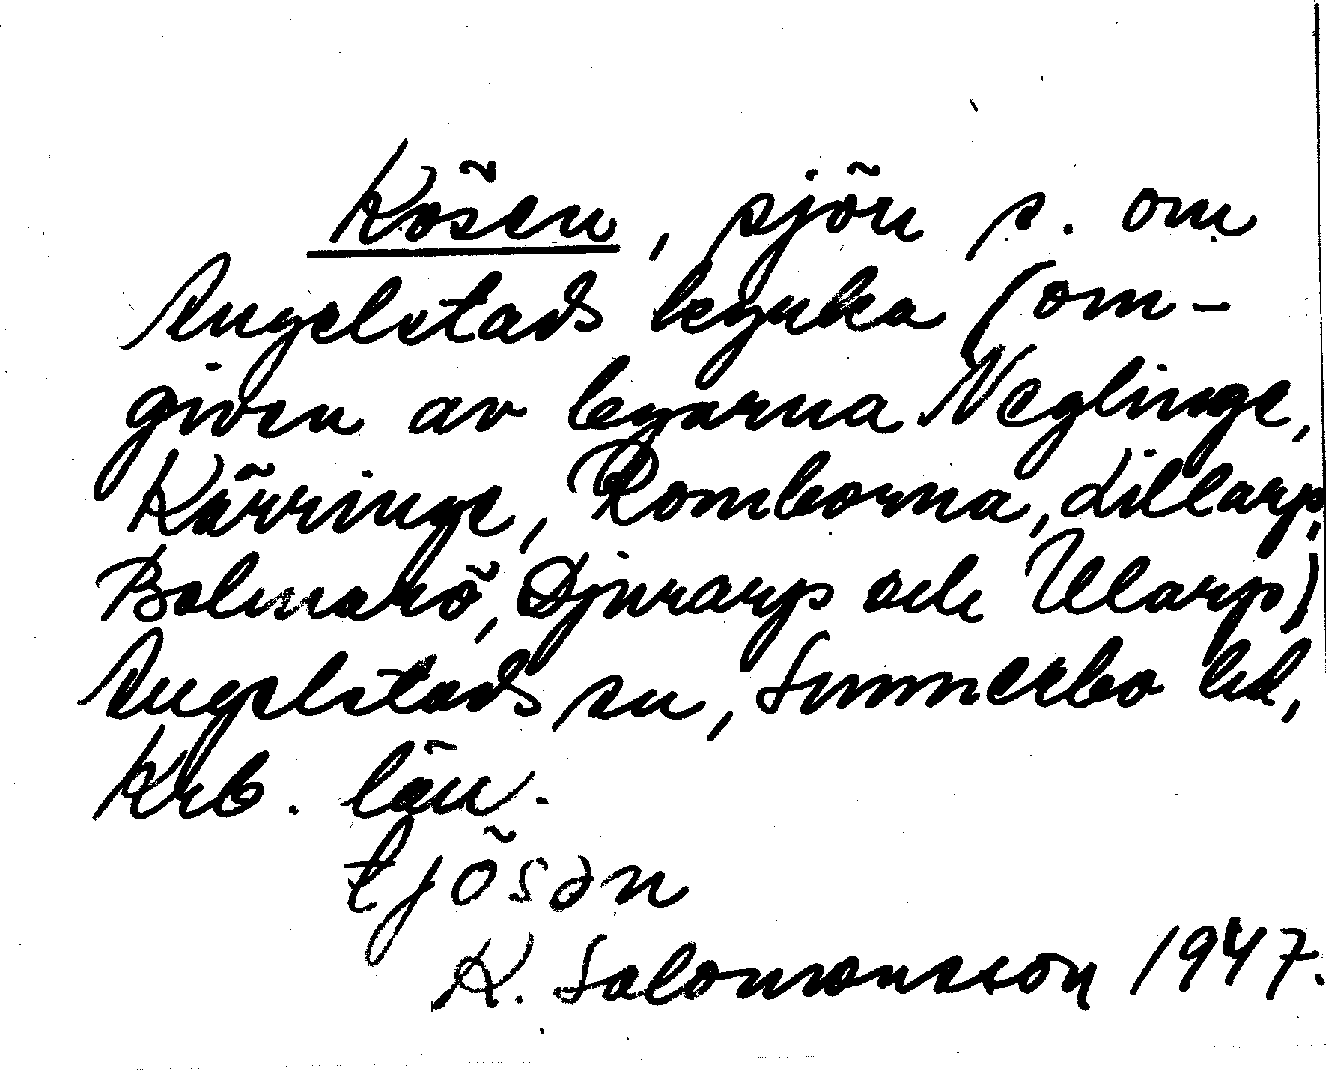 Kösen, sjön s. om
Angelstads kyrka (om-
given av byarna Neglinge,
Kärringe, Romborna, Lillarp,
Bolmarö, Djurarp och Ularp)
Angelstads sn, Sunnerbo hd,
Krb. län.
tjösən
K. Salomonsson 1947.